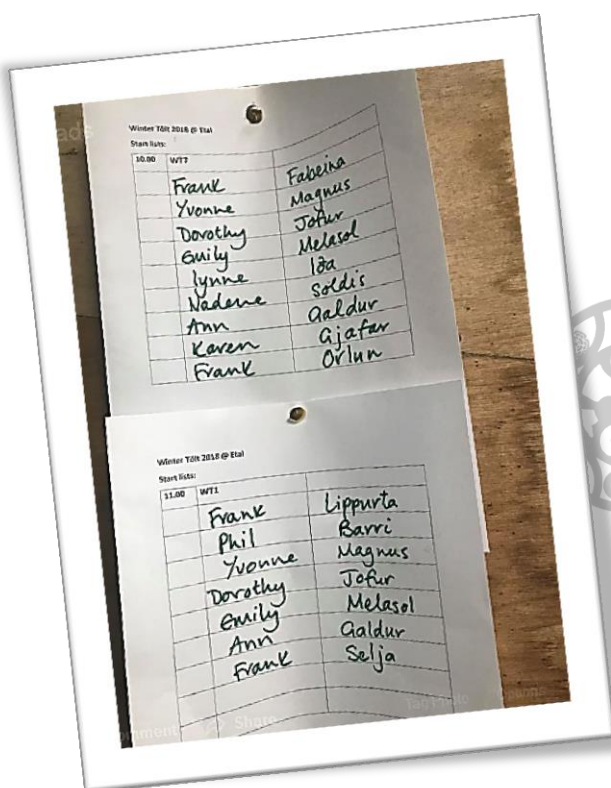 Winter Tölt 2018 @ Etal
Start lists:
10.00 WT7
Frank Fabeina
Yvonne Magnus
Dorothy Jofur
Emily Melasol
Lynne Iða
Nadene Soldis
Ann Galdur
Karen Gjafar
Frank Orlun
Winter Tölt 2018 @ Etal
Start lists:
11.00 WT1
Frank Lippurta
Phil Barri
Yvonne Magnus
Dorothy Jofur
Emily Melasol
Ann Galdur
Frank Selja
Share